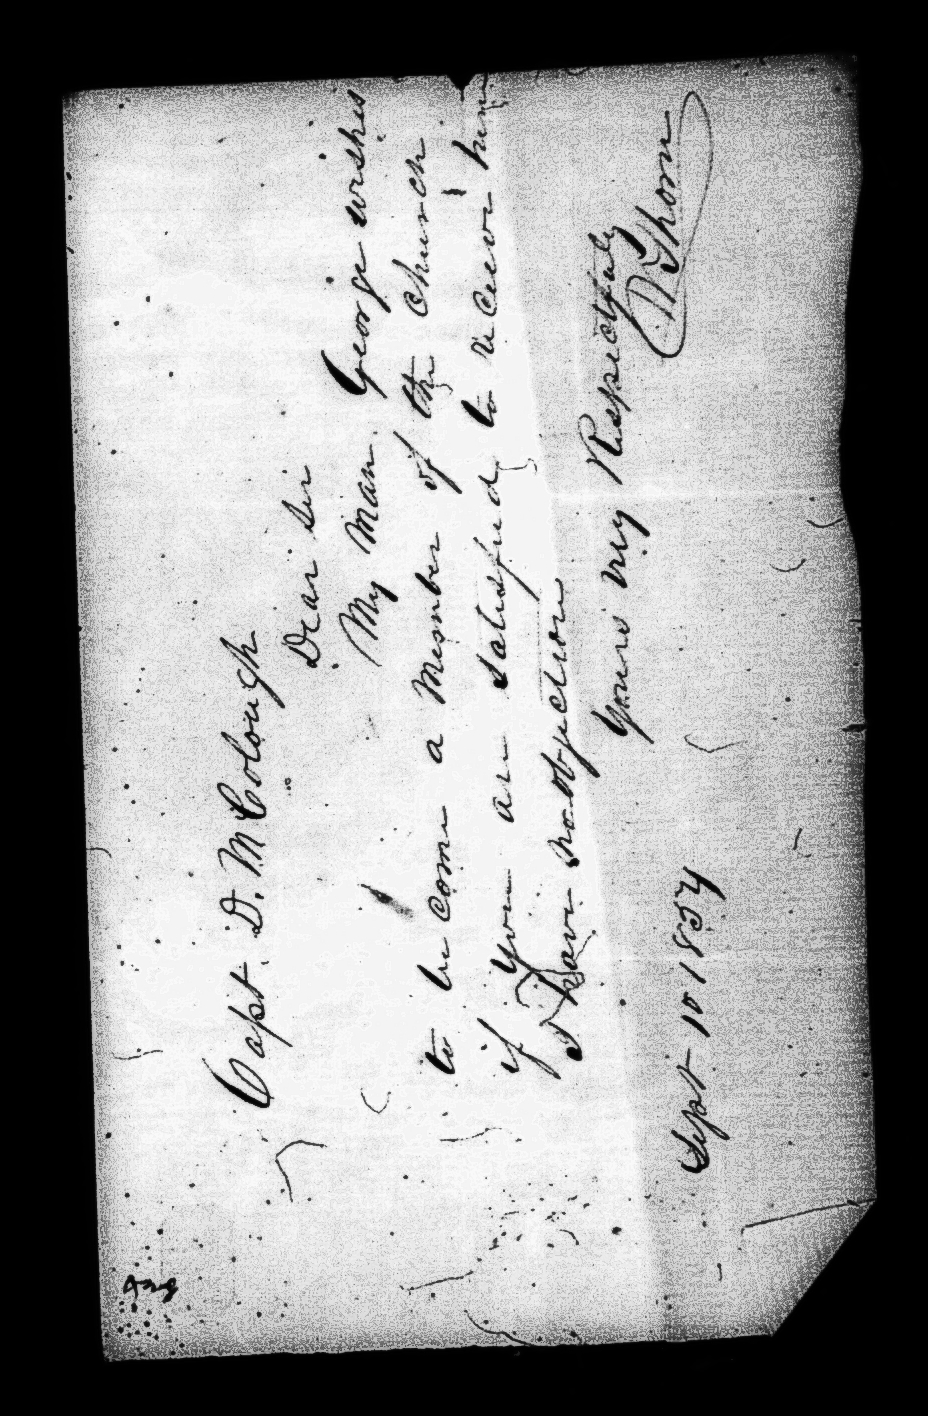 Capt. D. McColough
Dear Sir
My Man George wishes
to be come a Member of the Church
if you are Satisfied to receive him
I have no objection
Yours very Respectfuly
Thom
Sept 10 1857